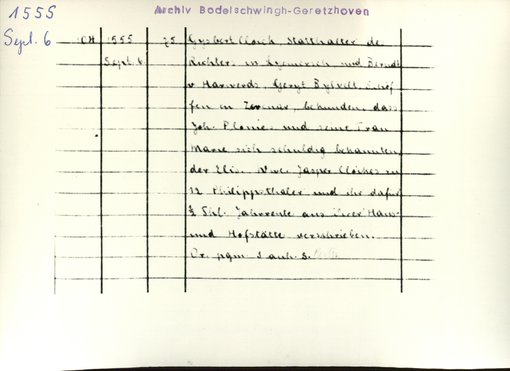 1555
Sept. 6
Archiv Bodelschwingh-Geretzhoven
CH 1555 75 Gysbert Cloich, Statthalter de
Sept. 6. Richters in und Berndt
v. Harwerds, Geryt Bylvelt,
fen in Zevenar, bekunden, dass
Joh. Plonies und seine Frau
Marie sich schuldig bekannten
der Elis. Wwe. Jasper Cloickes zu
12 Philippsthaler und ihr dafür
½ Thl. Jahrrente aus ihrer Haus
und Hofstätte verschrieben.
Or. pgm. 3 anh. S.